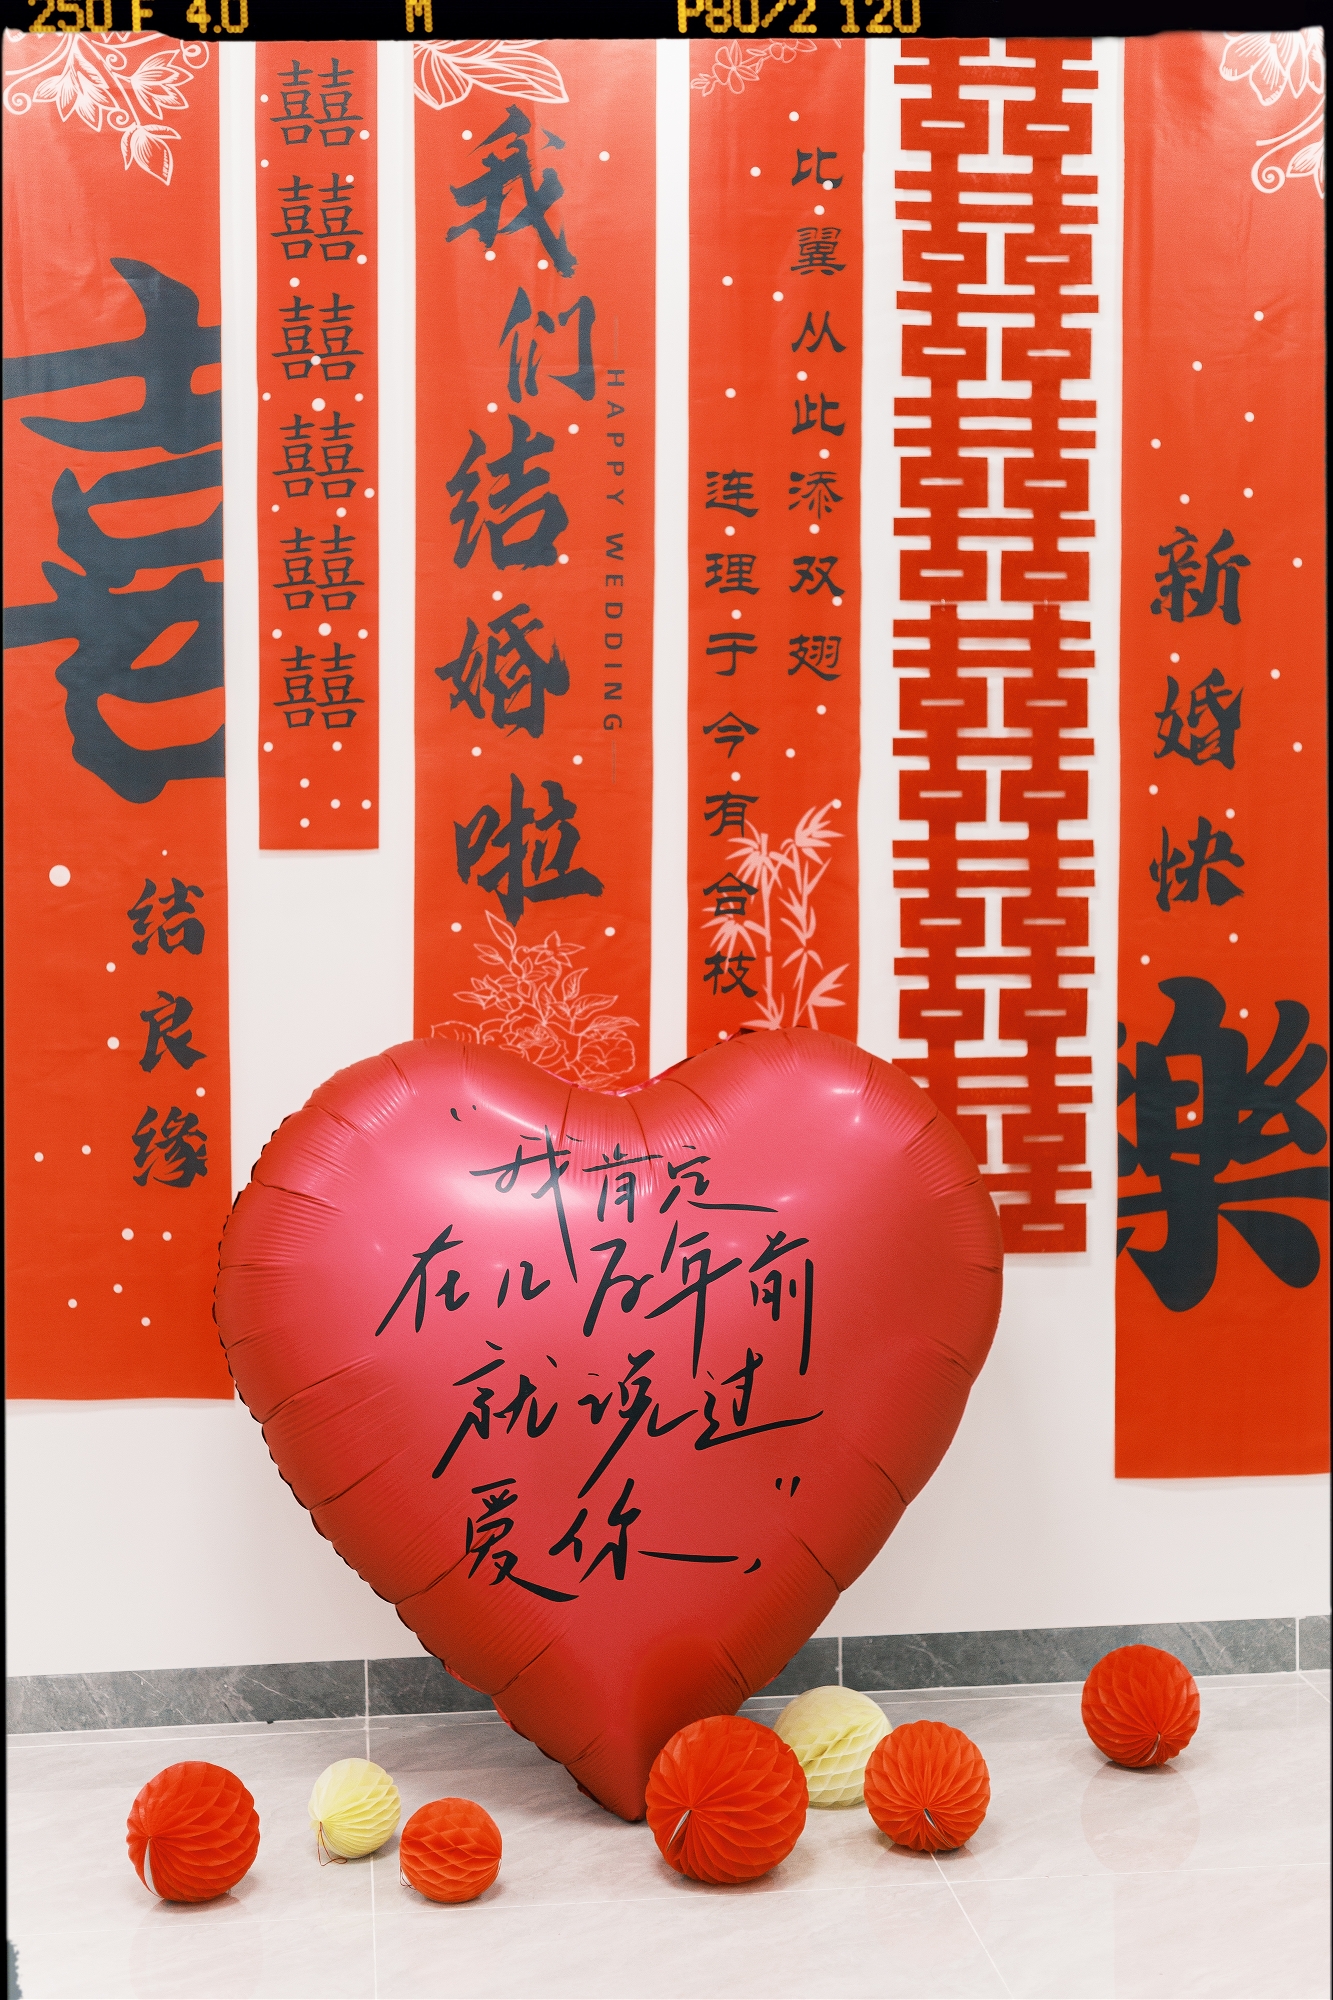 250 F 4.0 M P80/2 120
喜
结良缘
囍囍囍囍囍囍
我们结婚啦
HAPPY WEDDING
比翼从此添双翅
连理于今有合枝
囍囍囍囍囍囍
新婚快樂
“我肯定
在几万年前
就说过
爱你，”